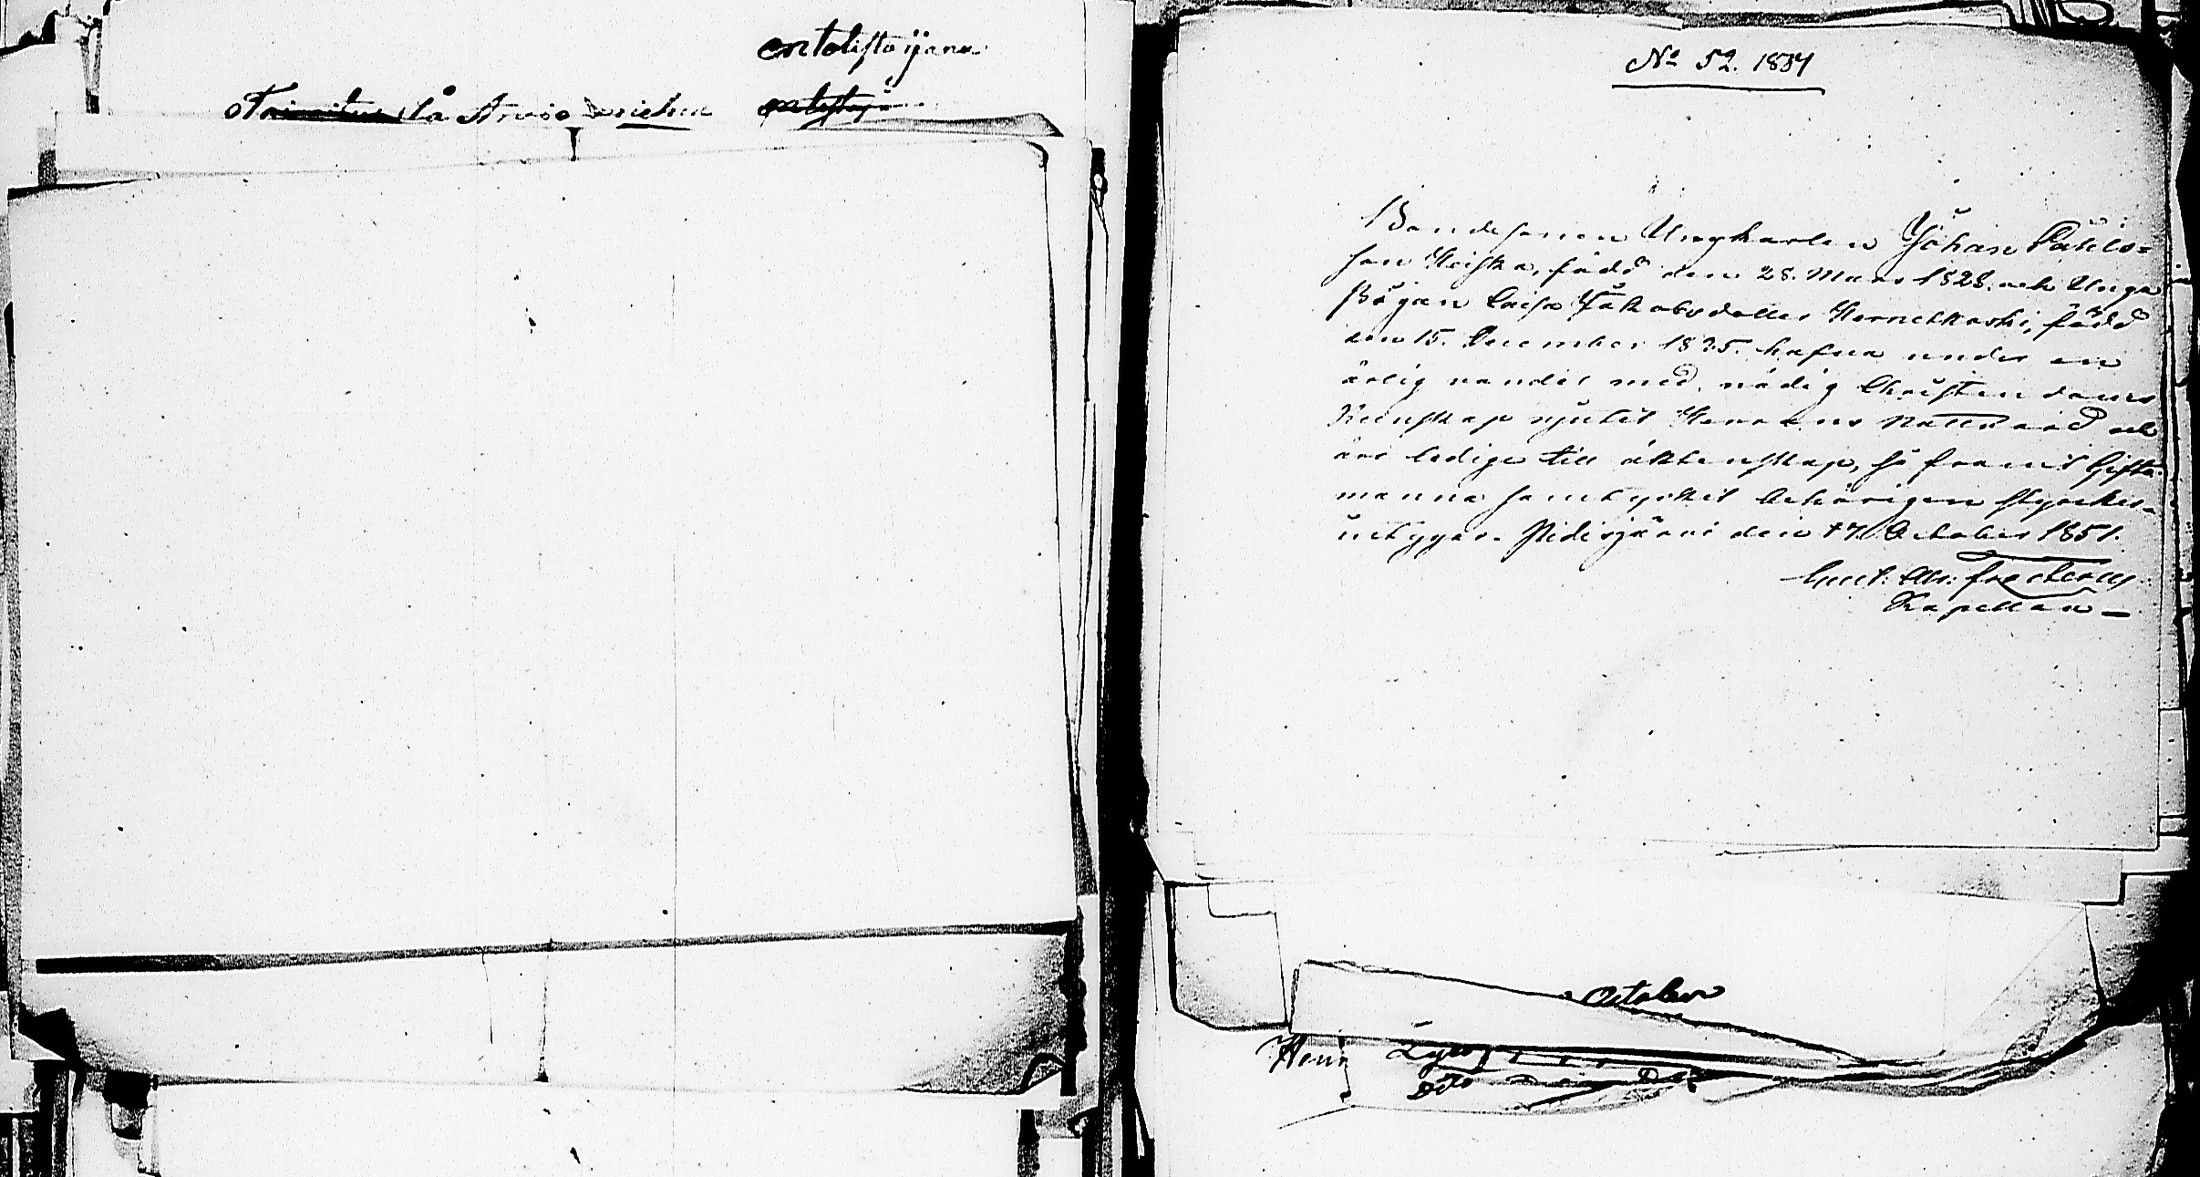 entolistoijana
stå Arvio
No 52. 1834
Bondesonen Ungkarlen Johan Påhls-
son Heiska, född den 28. Mars 1828. och Unga
Pigan Caisa Jakobsdotter Hernetkoski, född
den 15. December 1835. hafva under en
ärlig vandel med nödig Christendoms
Kunskap njutit Herrans Nattvard och
äro ledige till äktenskap, så framt Gifto-
manna samtycket behörigen styrkes.
uitygas. Pidisjärvi den 17. October 1851.
Kapellan
October
Henr